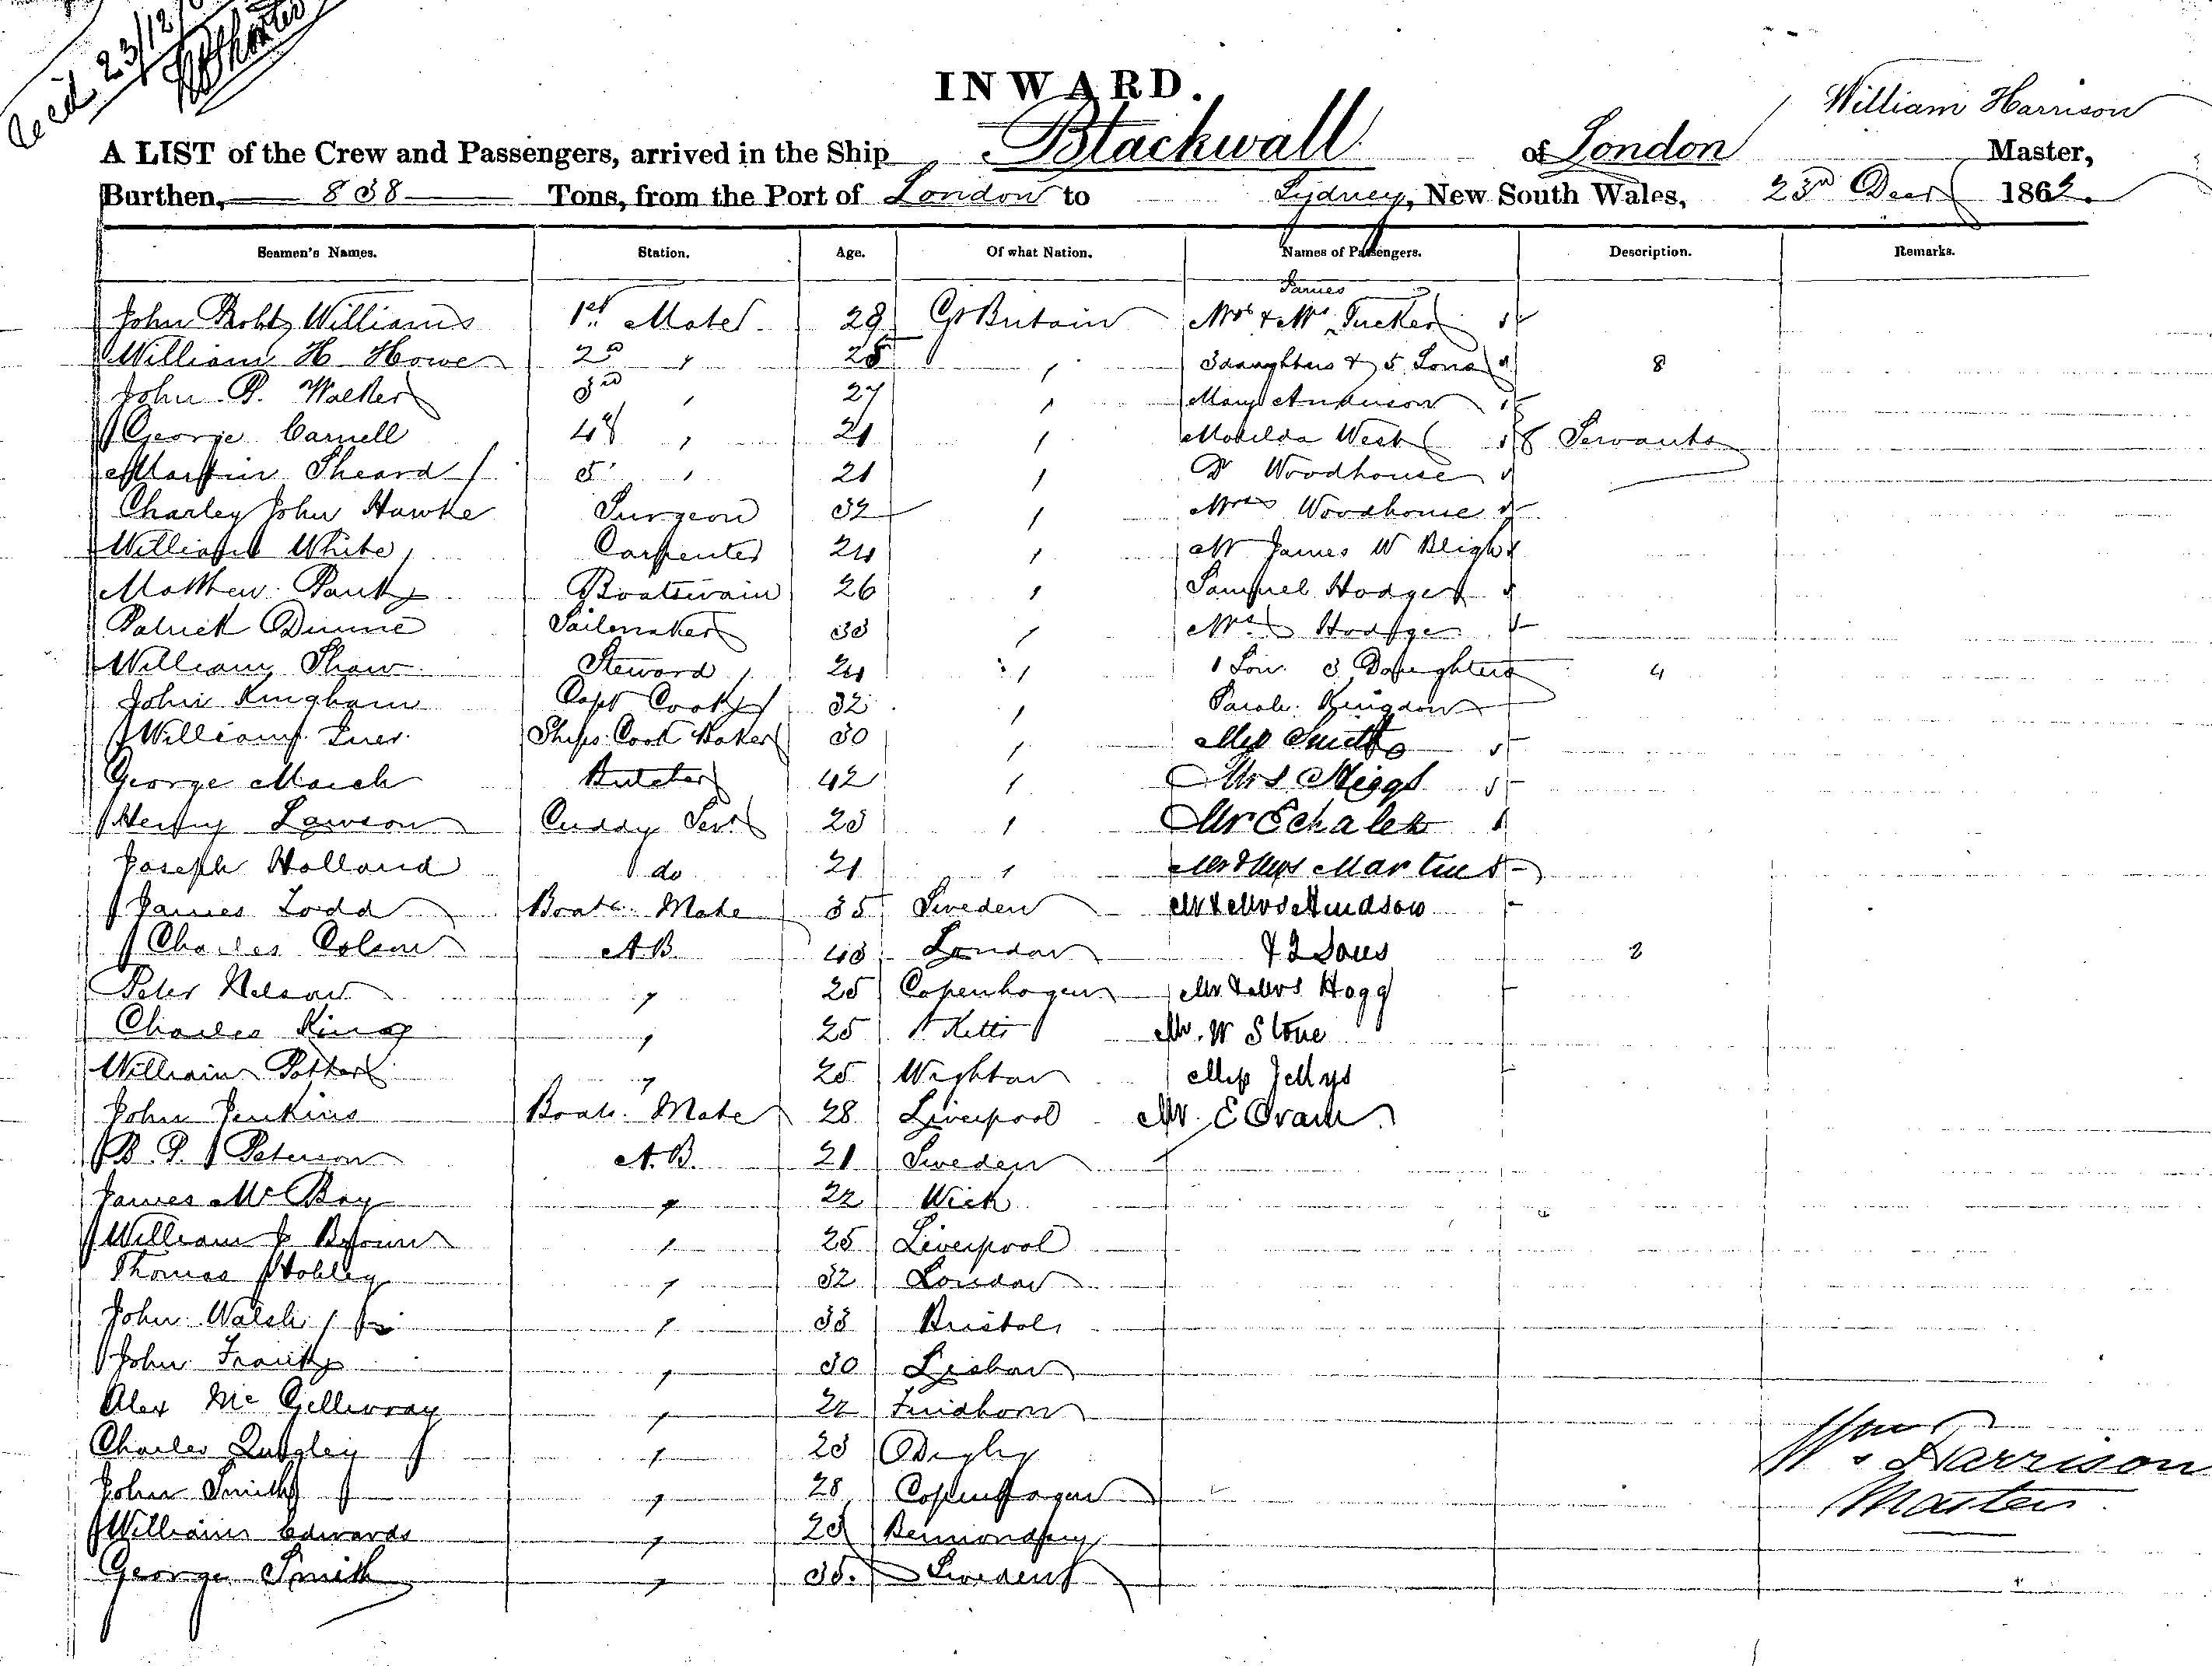 Rec'd 23/12/6
INWARD.
William Harrison
A LIST of the Crew and Passengers, arrived in the Ship Blackwall of London Master,
Burthen, 838 Tons, from the Port of London to Sydney, New South Wales, 23rd Decr 1862.
Seamen's Names. Station. Age. Of what Nation. Names of Passengers. Description. Remarks.
James
John Robt Williams 1st Mate 29 Gt Britain Mrs & Mr Tucker
William H Howe 2nd " 25 " 3 daughters & 5 Sons 8
John P. Walker 3rd " 27 " Mary Anderson
George Carnell 4th " 21 " Matilda West Servants
Martin Sheard 5 " 21 " Dr Woodhouse
Charles John Hawke Surgeon 32 " Mrs Woodhouse
William White Carpenter 24 " Mr James W Bligh
Matthew Boatswain 26 " Samuel Hodge
Patrick Dunne Sailmaker 33 " Mrs Hodge
William Shaw Steward 24 " 1 Son 3 Daughters 4
John Kingham Capt Cook 32 " Sarah Kingdon
William Ships Cook Baker 30 " Miss Smith
George March Butcher 42 " Mrs Meggs
Henry Lawson Cuddy Servt 23 " Mr Echalez
Joseph Holland do 21 " Mr & Mrs Martin
James Todd Boats. Mate 35 Sweden Mr & Mrs Hudson
Charles A.B. 43 London & 2 Sons 2
Peter Nelson " 25 Copenhagen Mr & Mrs Hogg
Charles King " 25 Mr. W Stone
William Potter " 25 Wighton Miss Jellys
John Jenkins Boats. Mate 28 Liverpool Mr. E Oram
B. P. Peterson A.B. 21 Sweden
James Mc Bay " 22 Wick
William J Brown " 25 Liverpool
Thomas Hobley " 32 London
John Walsh " 33 Bristol
John Franks " 30 Lisbon
Alex Mc Gillivray " 22 Findhorn
Charles Quigley " 23 Digby
John Smith " 28 Copenhagen
William Edwards " 23 Bermondsey
George Smith " 35. Sweden
Wm Harrison
Master